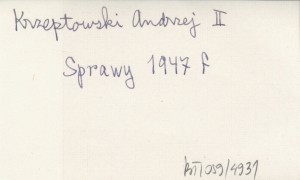 Krzeptowski Andrzej II
Sprawy 1947 f
BiT/059/4931